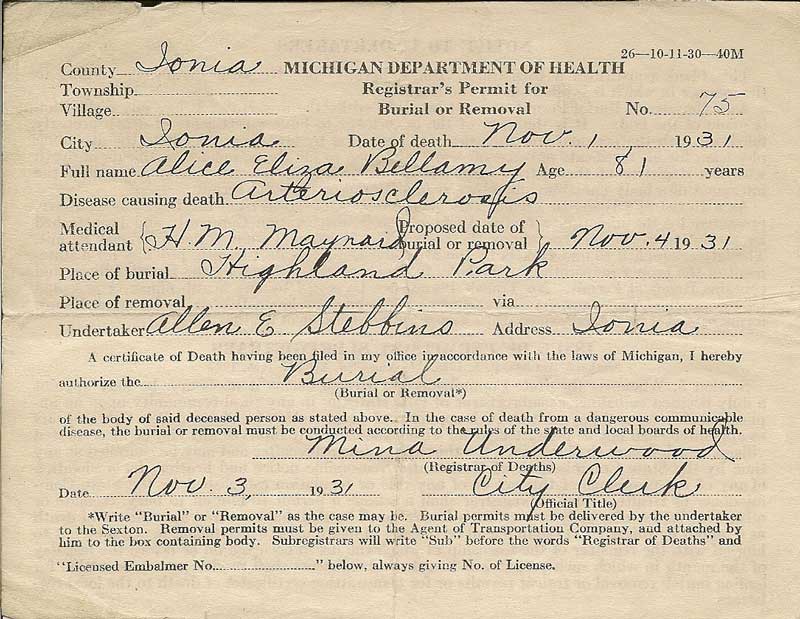 26—10-11-30—40M
County Ionia MICHIGAN DEPARTMENT OF HEALTH
Township Registrar's Permit for
Village Burial or Removal No. 75
City Ionia Date of death Nov. 1 1931
Full name Alice Eliza Bellamy Age 81 years
Disease causing death Arteriosclerosis
Medical attendant { H. M. Maynard Proposed date of burial or removal } Nov. 4 1931
Place of burial Highland Park
Place of removal via
Undertaker Allen E Stebbins Address Ionia
A certificate of Death having been filed in my office in accordance with the laws of Michigan, I hereby
authorize the Burial
(Burial or Removal*)
of the body of said deceased person as stated above. In the case of death from a dangerous communicable
disease, the burial or removal must be conducted according to the rules of the state and local boards of health.
Mina Underwood
(Registrar of Deaths)
Date Nov. 3, 1931 City Clerk
(Official Title)
*Write "Burial" or "Removal" as the case may be. Burial permits must be delivered by the undertaker
to the Sexton. Removal permits must be given to the Agent of Transportation Company, and attached by
him to the box containing body. Subregistrars will write "Sub" before the words "Registrar of Deaths" and
"Licensed Embalmer No. " below, always giving No. of License.